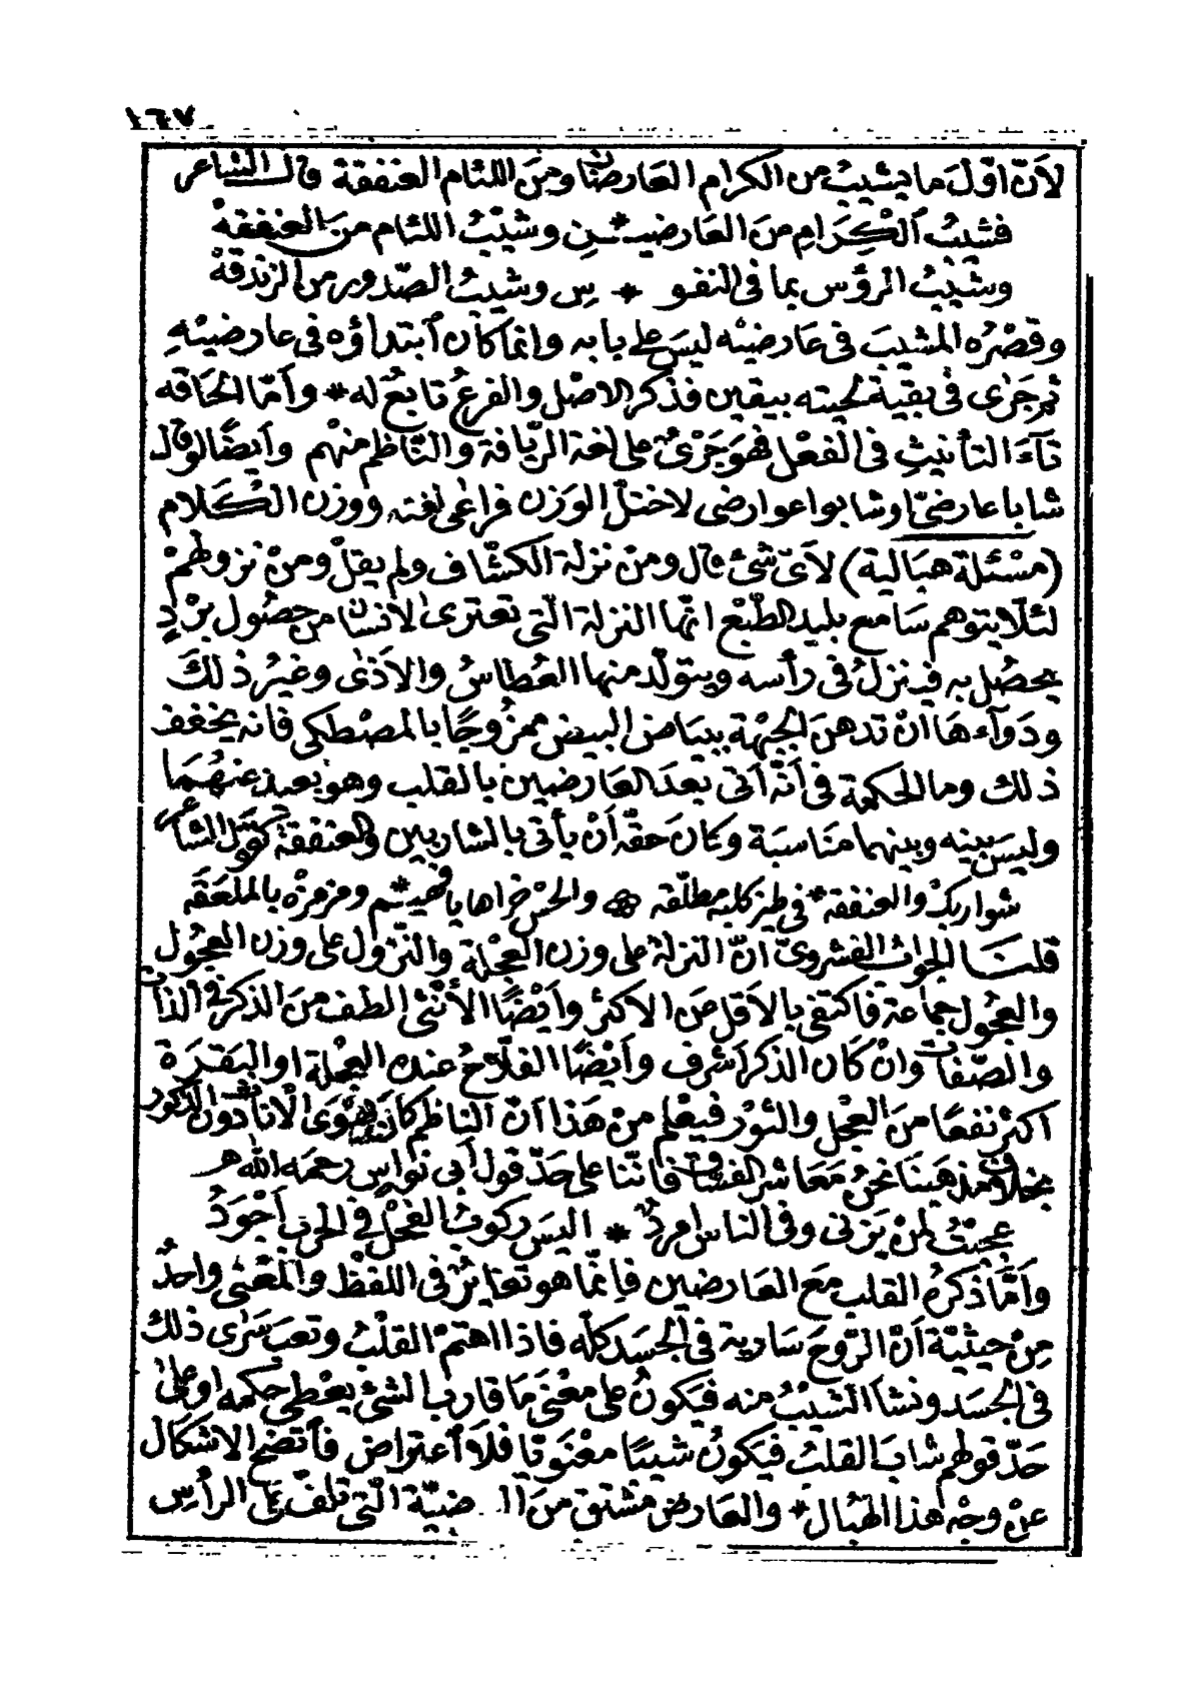 ١٦٧
لأنّ اوّل ما يشيب من الكرام العارضان ومن اللئام العنفقة قال الشاعر
فشيبُ الكِرَامِ مِنَ العارضيـ * ـن وشيبُ اللئام من العنفقهْ
وشيبُ الرؤس بما فى النفو * س وشيبُ الصّدور من الزندقهْ
وقصْرُه المشيبَ فى عَارضيْه ليسَ على بابه وانما كان ٱبتداؤه فى عارضيْهِ
ثم جَرَى فى بقية لحيته بيقين فذكر الاصْل والفرعُ تابعٌ له * وأمّا الحاقه
تآءَ التأنيثِ فى الفعْل فهوَ جَرْىٌ على لغة الريّافة والنّاظم منْهم وأيضًا لو قال
شابا عارضىّ او شابوا عوارضى لاختلّ الوَزن فراعَى لغته ووزن الكَلام
(مسْئلة هبالية) لأىّ شئ قال ومن نزلة الكشّاف ولم يقلْ ومنْ نزولهمْ
لئلّا يتوهم سَامع بليد الطّبْع انّها النزلة الّتى تعترى الانسان من حصُول برْدٍ
يحصُل به فينزلُ فى رأسه ويتولّد منها العُطاسُ والاَذى وغيرُ ذلكَ
ودَوآءهَا انْ تدهنَ الجبْهة ببيَاض البيض ممزُوجًا بالمصْطكى فانه يخفف
ذلك وما الحكمة فى أنّه أتى بعدَ العارضين بالقلب وهو بعيد عنهُمَا
وليسَ بينه وبينهما مناسَبَة وكانَ حقّه أنْ يأتى بالشاربين والعنفقة كقول الشاعر
شواربكْ والعنفقه * فى طيز كلبه مطلّقه والحسْ خراها يا فهيم * ومزمزْه بالملعَقَه
قلنَا الجوابُ الفشروىّ انّ النزلة على وزن العِجْلة والنّزول على وزن العجُول
والعجُول جماعة فاكتفى بالاَقل عن الاكثر وأيْضًا الأنْثى الطف من الذكر فى الذات
والصّفات وانْ كان الذكر أشرف وأيْضًا الفلّاحُ عنده العِجْلة او البَقرَة
اكثرُ نفعًا مِنَ العجْل والثوْر فيعْلم منْ هَذا انّ النّاظم كانَ يهْوَى الاناث دون الذكور
بخلاف مذهبنَا نحنُ مَعَاشر الفسّاق فانّنا على حَدّ قول أبى نواس رحمَه الله
عجبْتُ لمنْ يَزنى وفى النّاس امردٌ * اليسَ ركوبُ الفحْل فى الحرْب أجْوَدُ
وأمّا ذكرُه القلب مَع العارضين فانّما هو تغايُرٌ فى اللفظ والمعْنى واحدٌ
مِنْ حيثيّة أنّ الرّوحَ سَارية فى الجسَد كلّه فاذا اهتمّ القلْبُ وتعبَ سَرَى ذلك
فى الجسَد ونشأ الشيْبُ منه فيكونُ على معْنى مَا قاربَ الشئ يعْطى حكمه او على
حَدّ قولهم شابَ القلبُ فيكونُ شيبًا معْنَويّا فلاَ ٱعتراض فاتضح الاشكال
عنْ وجْه هذا الهبَال * والعَارضُ مشتق منَ ضيّة الّتى تلفّ على الرأس